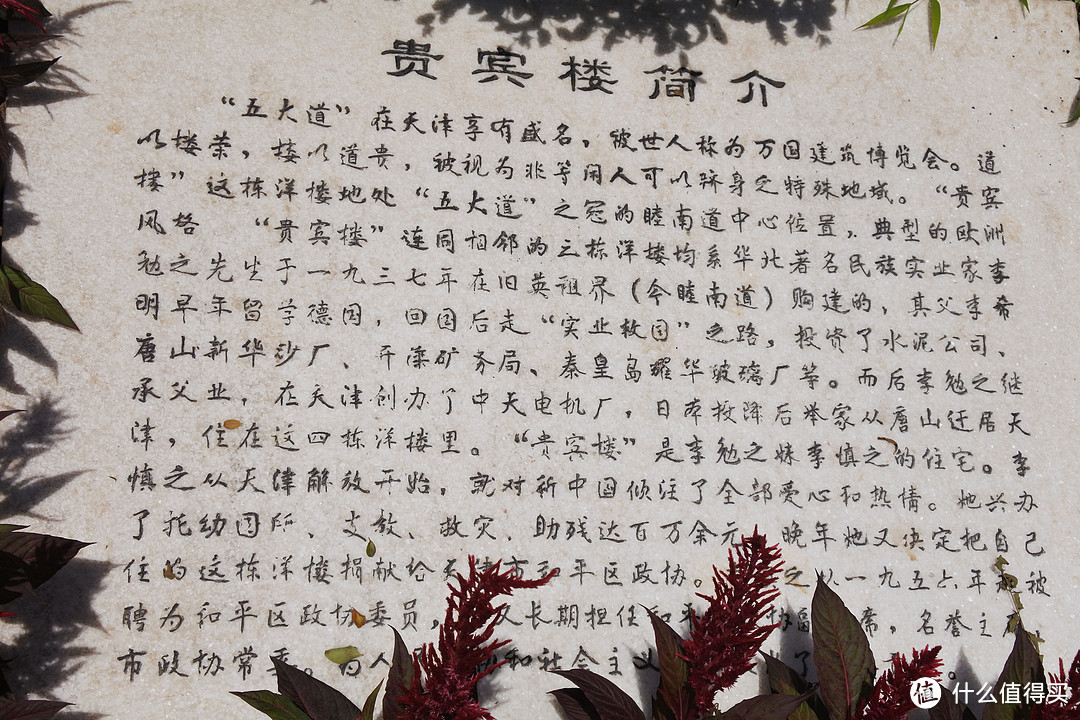 贵宾楼简介
“五大道”在天津享有盛名，被世人称为万国建筑博览会。道
以楼荣，楼以道贵，被视为非等闲人可以跻身之特殊地域。“贵宾
楼”这栋洋楼地处“五大道”之冠的睦南道中心位置，典型的欧洲
风格 “贵宾楼”连同相邻的三栋洋楼均系华北著名民族实业家李
勉之先生于一九三七年在旧英租界（今睦南道）购建的，其父李希
明早年留学德国，回国后走“实业救国”之路，投资了水泥公司、
唐山新华纱厂、开滦矿务局、秦皇岛耀华玻璃厂等。而后李勉之继
承父业，在天津创办了中天电机厂，日本投降后举家从唐山迁居天
津，住在这四栋洋楼里。“贵宾楼”是李勉之妹李慎之的住宅。李
慎之从天津解放开始，就对新中国倾注了全部爱心和热情。她兴办
了托幼园所、支教、救灾、助残达百万余元 晚年她又决定把自己
住的这栋洋楼捐献给天津市和平区政协。 之从一九五六年 被
聘为和平区政协委员， 又长期担任和平 协副 席，名誉主席
市政协常委。为人 和社会主义 了 。
值 什么值得买